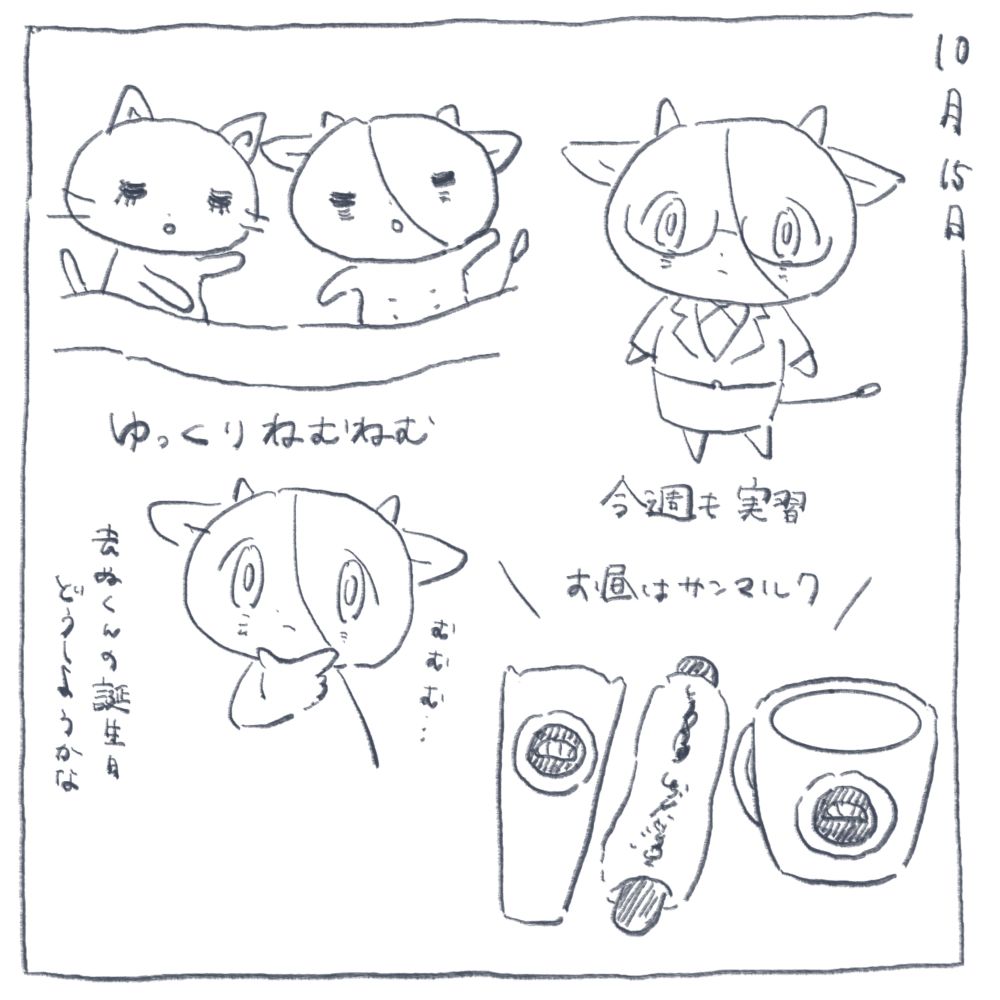 10月15日
ゆっくりねむねむ
今週も実習
お昼はサンマルク
むむむ…
去ぬくんの誕生日
どうしようかな